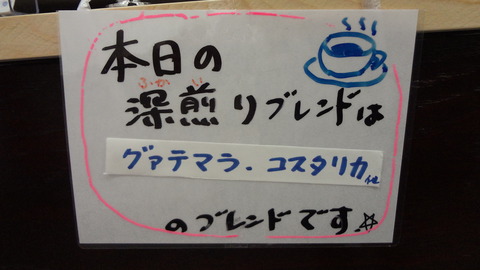 本日の
ふか い
深煎りブレンドは
グァテマラ、コスタリカ他
のブレンドです☆